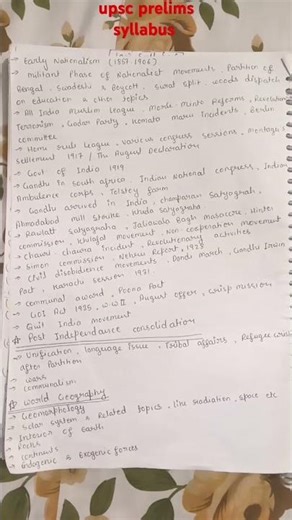 upsc prelims
syllabus
→ Early Nationalism (1857 1906)
→ militant Phase of Nationalist movements, Partition of
Bengal, Swadeshi & Boycott, Surat split, woods dispatch
on education & other topics
→ All India muslim league, Morle minto Reforms, Revolutionary
Terrorism, Gadar Party, Komata maru incidents, Berlin
committee
→ Home rule League, various congress sessions, Montague's
settlement 1917 / The August Declaration
→ Govt of India 1919
→ Gandhi in south africa, Indian National congress, Indian
Ambulence corps, Tolstoy farm
→ Gandhi arrived in India, champaran Satyagrah,
Ahmadabad mill strike, Kheda Satyagraha
→ Rowlatt satyagraha, Jaliawala Bagh massacre, Hunter
commission, Khilafat movement, Non cooperation movement
→ Chauri-chaura incident, Revolutionary activities
→ Simon commission, Nehru Report, 1928
→ Civil disobidience movements, Dandi march, Gandhi Irwin
Pact, Karachi session 1931
→ Communal award, Poona Pact
→ GOI Act 1935, WWII, August offer, crisp mission
→ Quit India movement
Post Independance consolidation
→ Unification, language issue, Tribal affairs, Refugee crisis
after Partition
→ wars
→ communalism
World Geography
→ Geomorphology
→ Solar system & Related topics, like radiation, space etc
→ Interior of Earth
→ Rocks
→ continents
→ Indogenic & Exogenic forces